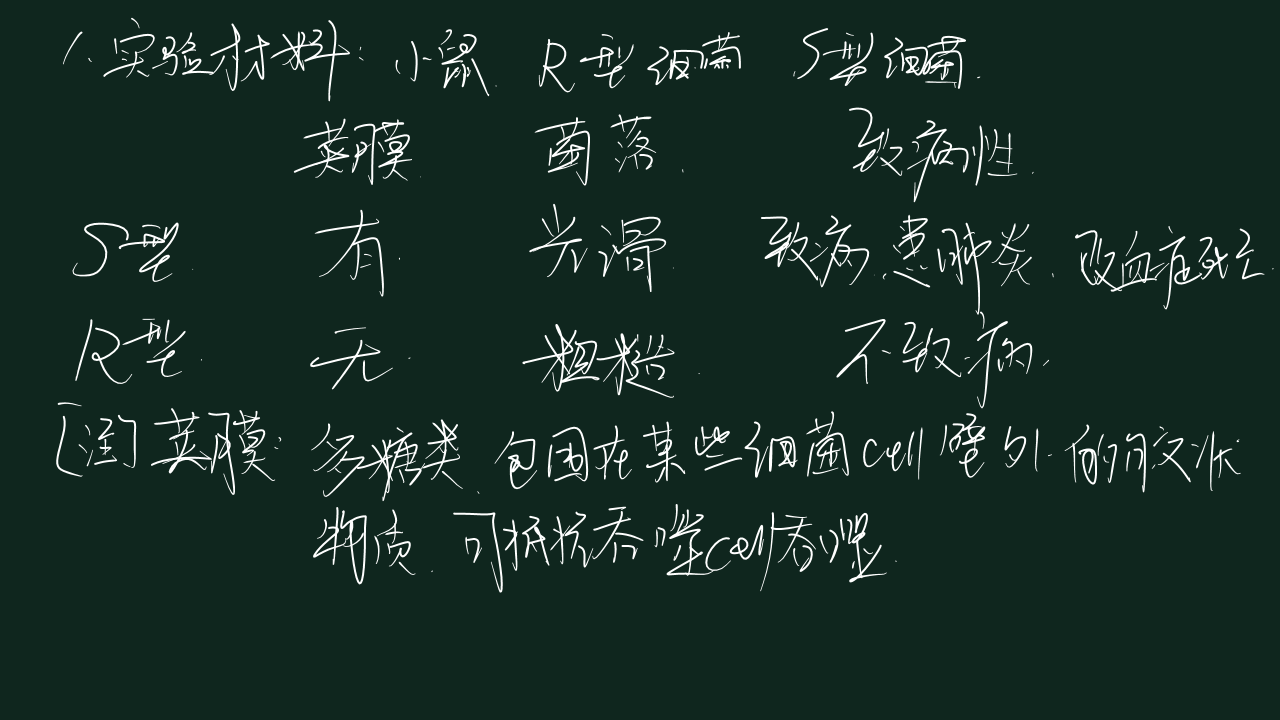 1. 实验材料: 小鼠. R型细菌 S型细菌.
荚膜. 菌落. 致病性.
S型. 有. 光滑. 致病. 患肺炎. 败血症死亡.
R型. 无. 粗糙. 不致病.
[注] 荚膜: 多糖类. 包围在某些细菌cell壁外.的胶状
物质. 可抵抗吞噬cell吞噬.